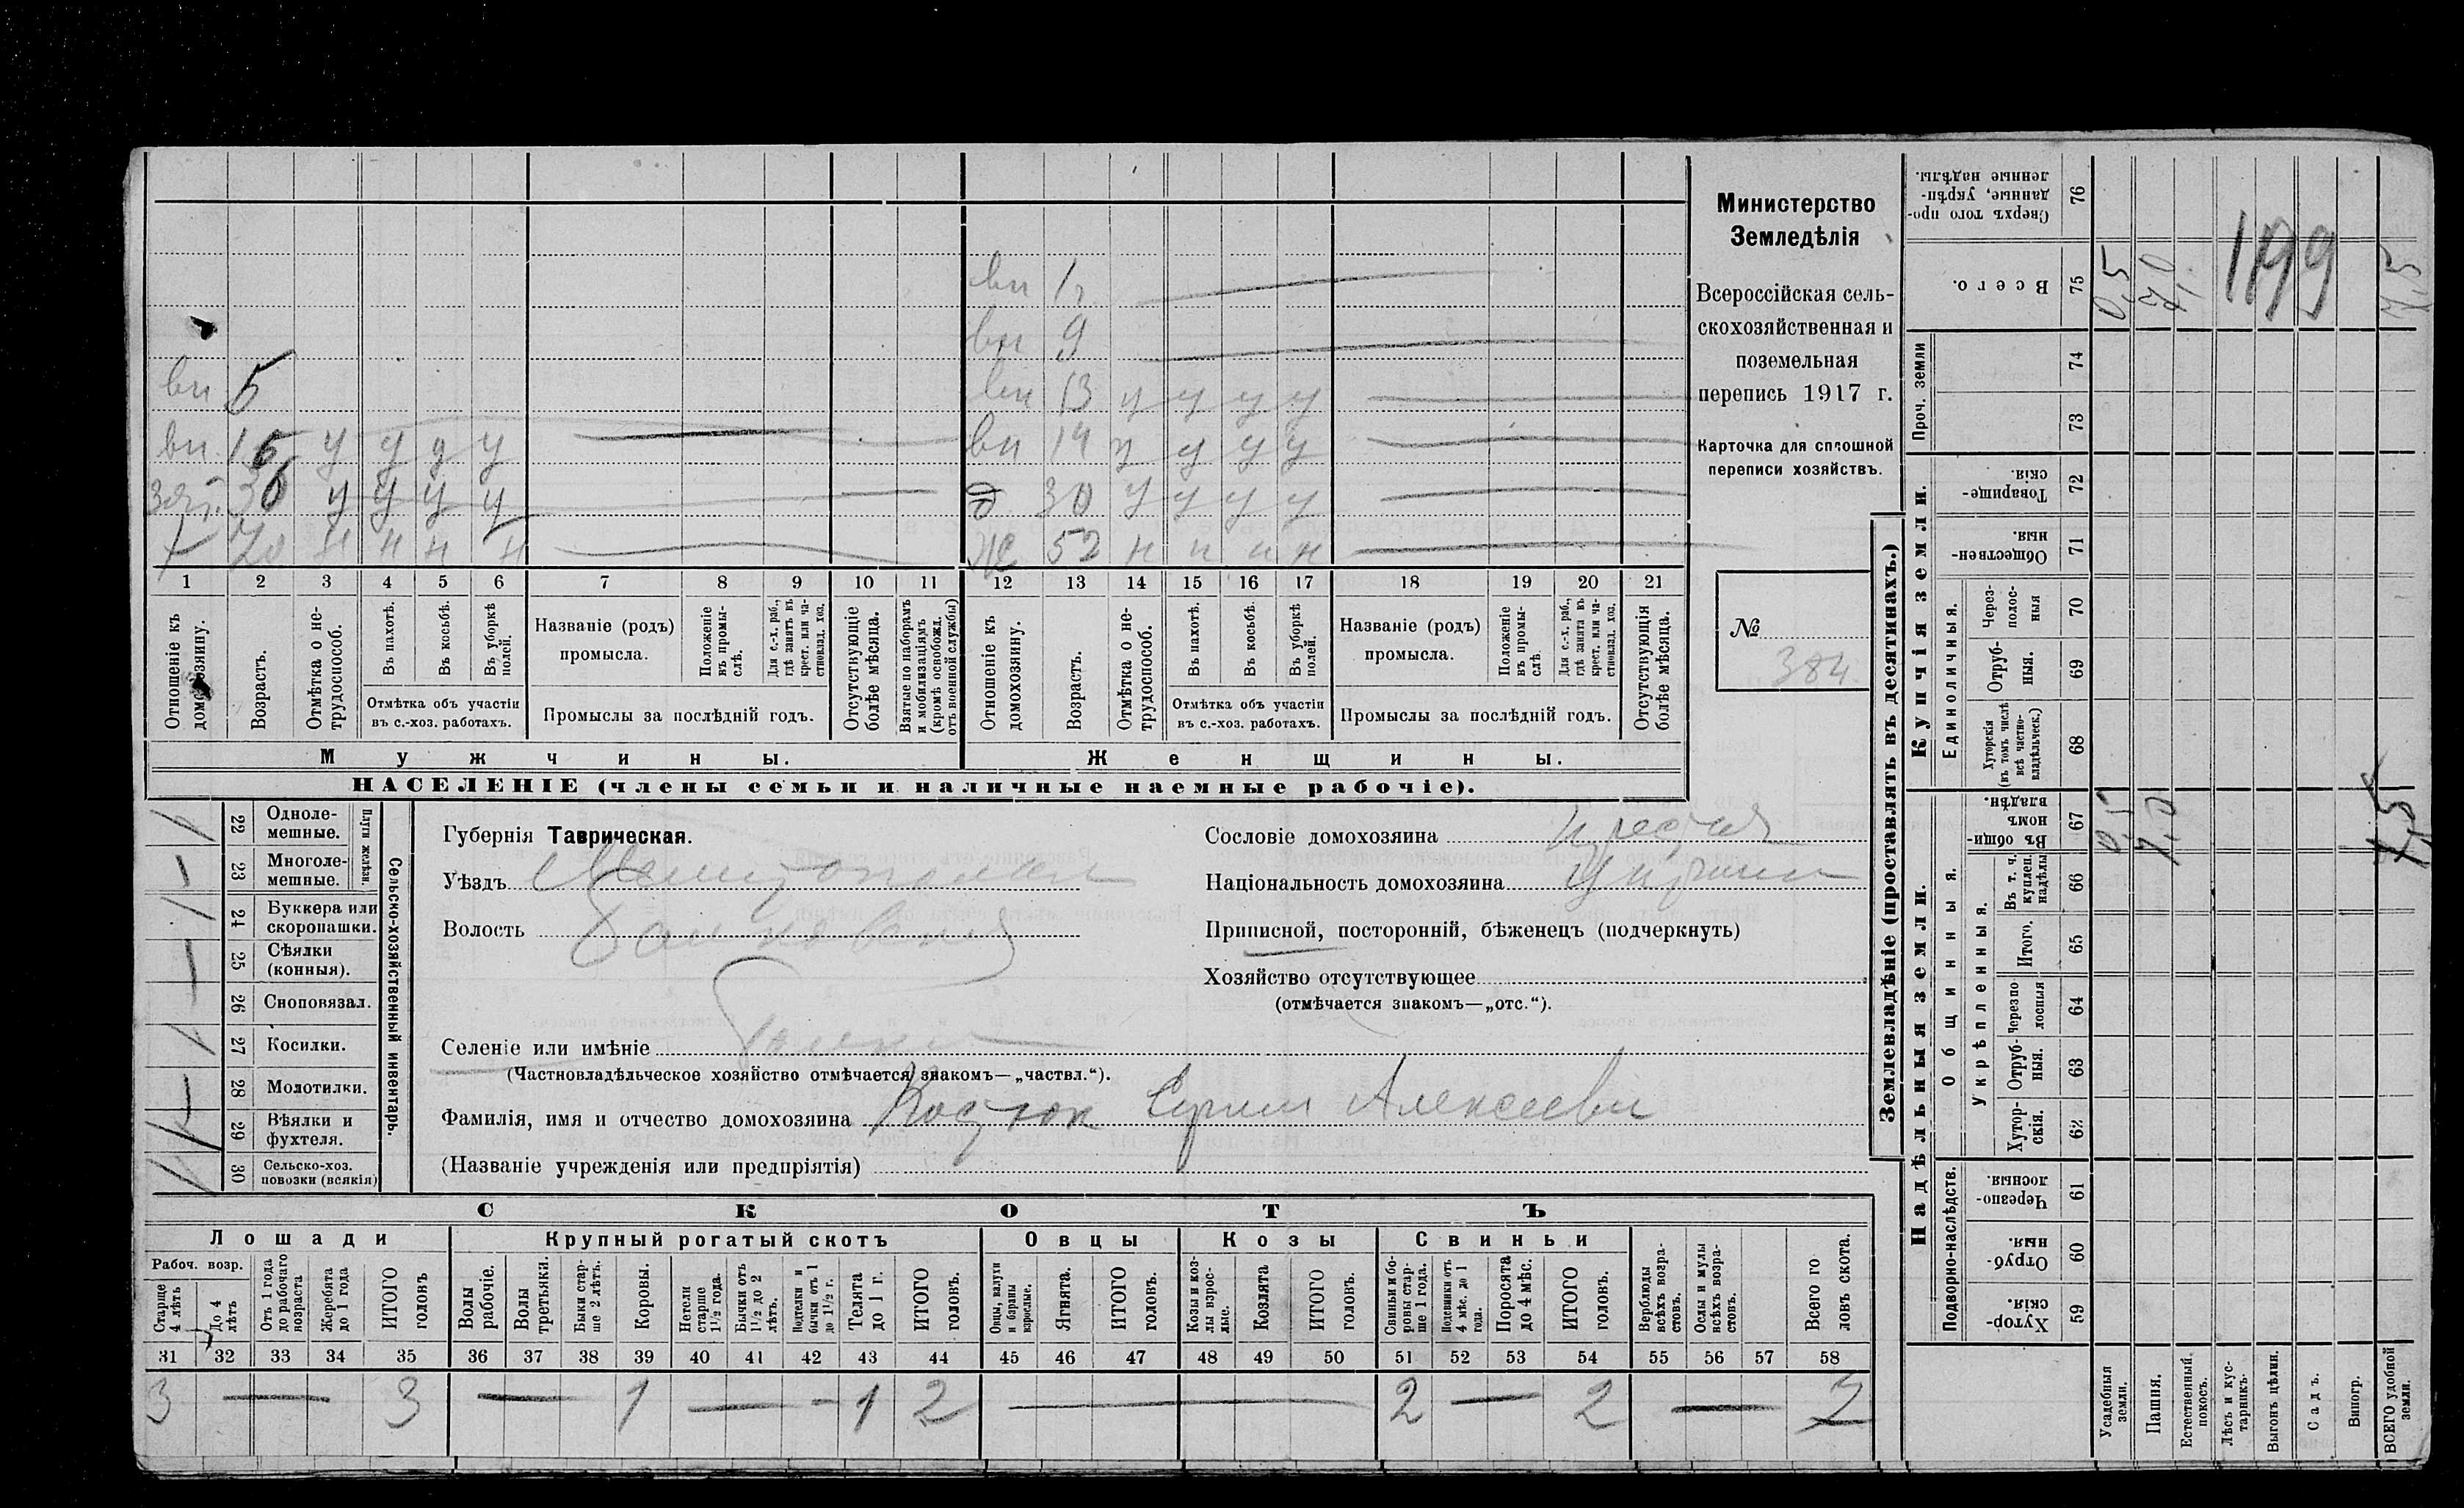 вн 1/2
вн 9
вн 5 вн 13 у у у у
вн 15 у у у у вн 14 у у у у
зят. 36 у у у у д 30 у у у у
70 н н н н ж 52 н н н н
1 2 3 4 5 6 7 8 9 10 11 12 13 14 15 16 17 18 19 20 21
Отношеніе къ домохозяину.
Возрастъ.
Отмѣтка о не-
трудоспособ.
Въ пахотѣ.
Въ косьбѣ.
Въ уборкѣ полей.
Отмѣтка объ участіи
въ с.-хоз. работахъ.
Названіе (родъ)
промысла.
Положеніе въ промы-
слѣ.
Для с.-х. раб.,
гдѣ занятъ въ
крест. или ча-
стновлад. хоз.
Промыслы за послѣдній годъ.
Отсутствующіе
болѣе мѣсяца.
Взятые по наборамъ
и мобилизаціямъ
(кромѣ освобожд.
отъ военной службы)
Отношеніе къ
домохозяину.
Возрастъ.
Отмѣтка о не-
трудоспособ.
Въ пахотѣ.
Въ косьбѣ.
Въ уборкѣ полей.
Отмѣтка объ участіи
въ с.-хоз. работахъ.
Названіе (родъ)
промысла.
Положеніе
въ промы-
слѣ.
Для с.-х. раб.,
гдѣ занята въ
крест. или ча-
стновлад. хоз.
Промыслы за послѣдній годъ.
Отсутствующія
болѣе мѣсяца.
Мужчины.
Женщины.
НАСЕЛЕНІЕ (члены семьи и наличные наемные рабочіе).
Министерство
Земледѣлія
Всероссійская сель-
скохозяйственная и
поземельная
перепись 1917 г.
Карточка для сплошной
переписи хозяйствъ.
№
384
22 Одноле-
мешные.
23 Многоле-
мешные.
Плуги желѣзн.
24 Буккера или
скоропашки.
25 Сѣялки
(конныя).
26 Сноповязал.
27 Косилки.
28 Молотилки.
29 Вѣялки и
фухтеля.
30 Сельско-хоз.
повозки (всякія)
Сельско-хозяйственный инвентарь.
Губернія Таврическая.
Уѣздъ Мелитопольск
Волость
Селеніе или имѣніе
(Частновладѣльческое хозяйство отмѣчается знакомъ—„частвл.“).
Фамилія, имя и отчество домохозяина Костюк Алексеевич
(Названіе учрежденія или предпріятія)
Сословіе домохозяина
Національность домохозяина Украин
Приписной, посторонній, бѣженецъ (подчеркнуть)
Хозяйство отсутствующее
(отмѣчается знакомъ—„отс.“).
СКОТЪ
Лошади Крупный рогатый скотъ Овцы Козы Свиньи
Рабоч. возр.
Старше
4 лѣтъ
До 4
лѣтъ
Отъ 1 года
до рабочаго
возраста
Жеребята
до 1 года
ИТОГО
головъ
Волы
рабочіе.
Волы
третьяки.
Быки стар-
ше 2 лѣтъ.
Коровы.
Нетели
старше
1½ года.
Бычки отъ
1½ до 2
лѣтъ.
Подтелки и
бычки отъ 1
до 1½ г.
Телята
до 1 г.
ИТОГО
головъ.
Овцы, валухи
и бараны
взрослые.
Ягнята.
ИТОГО
головъ.
Козы и коз-
лы взрос-
лые.
Козлята
ИТОГО
головъ.
Свиньи и бо-
ровы стар-
ше 1 года.
Подсвинки отъ
4 мѣс. до 1
года.
Поросята
до 4 мѣс.
ИТОГО
головъ.
Верблюды
всѣхъ возра-
стовъ.
Ослы и мулы
всѣхъ возра-
стовъ.
Всего го
ловъ скота.
31 32 33 34 35 36 37 38 39 40 41 42 43 44 45 46 47 48 49 50 51 52 53 54 55 56 57 58
3 — 3 — 1 — - 1 2 — 2 — 2 — 7
Землевладѣніе (проставлять въ десятинахъ.)
Надѣльныя земли.
Купчія земли.
Подворно-наслѣдств.
Хутор-
скія. 59
Отруб-
ныя. 60
Черезпо-
лосныя. 61
Общинныя.
Укрѣпленныя.
Хутор-
скія. 62
Отруб-
ныя. 63
Черезпо
лосныя 64
Итого. 65
Въ т. ч.
куплен.
надѣлы 66
Въ общи
номъ
владѣн. 67
Единоличныя.
Хуторскія
(въ томъ числѣ
всѣ частно-
владѣльческ.) 68
Отруб-
ныя. 69
Через-
полос-
ныя 70
Обществен-
ныя. 71
Товарище-
скія. 72
Проч. земли
73 74
Всего. 75
Сверхъ того про-
данные, укрѣп-
ленные надѣлы. 76
Усадебныя
земли. 0,5 0,5
Пашня. 7,0 7,0
Естественный
покосъ.
Лѣсъ и кус-
тарникъ.
Выгонъ цѣлин.
Садъ.
Виногр.
ВСЕГО удобной
земли. 7,5 7,5
1199